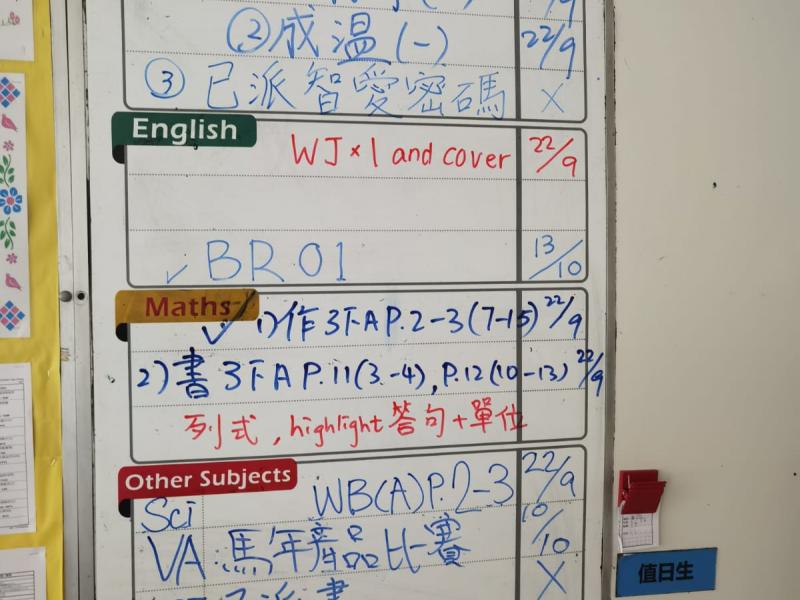 ②成温(一) 22/9
③已派智愛密碼 ×
English
WJ×1 and cover 22/9
✓BR 01 13/10
Maths
✓1)作3下A P.2-3(7-15) 22/9
2)書3下A P.11(3-4), P.12(10-13) 22/9
列式, highlight答句+單位
Other Subjects
Sci WB(A)P.2-3 22/9
VA 馬年產品比賽 10/10
已派書 ×
值日生